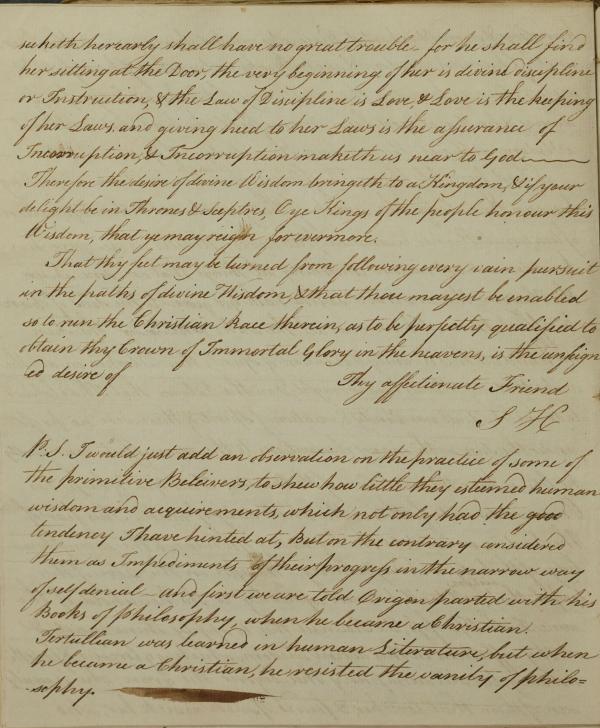 seeketh her early shall have no great trouble - for he shall find
her sitting at the Door, the very beginning of her is divine discipline
or Instruction, & the Law of Discipline is Love, & Love is the keeping
of her Laws, and giving heed to her Laws is the assurance of
Incorruption, & Incorruption maketh us near to God
Therefore the desire of divine Wisdom bringeth to a Kingdom, & if your
delight be in Thrones & Scepters, O ye Kings of the people honour this
Wisdom, that ye may reign forevermore.
That thy feet may be turned from following every vain pursuit
in the paths of divine Wisdom, & that thou mayest be enabled
so to run the Christian Race therein, as to be perfectly qualified to
obtain thy Crown of Immortal Glory in the heavens, is the unfeign
ed desire of Thy affectionate Friend
S H
P. S. I would just add an observation on the practice of some of
the primitive Beleivers, to shew how little they esteemed human
wisdom and acquirements, which not only had the good
tendency I have hinted at, But on the contrary considered
them as Impediments of their progress in the narrow way
of self denial - and first we are told Origon parted with his
Books of philosophy, when he became a Christian.
Tertullian was learned in human Literature, but when
he became a Christian, he resisted the vanity of philo=
sophy.